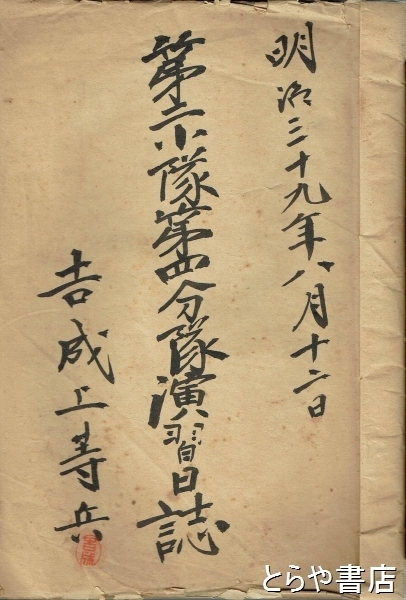 明治三十九年八月十二日
第二小隊第四分隊演習日誌
吉成上等兵
とらや書店